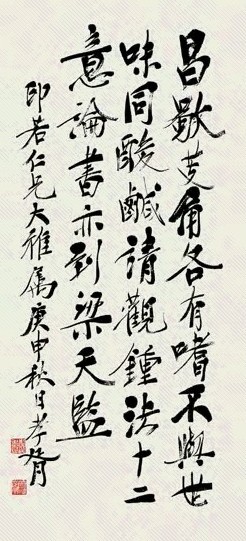 昌歜芰角各有嗜不與世
味同酸鹹請觀鍾法十二
意論書亦到梁天監
印若仁兄大雅屬庚申秋日孝胥